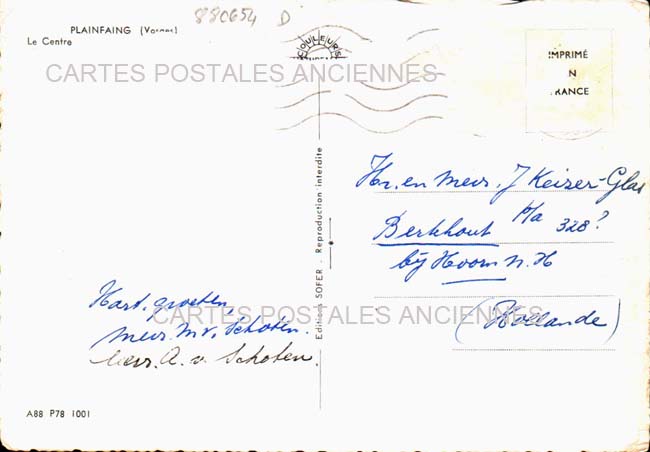 880654 D
PLAINFAING (Vosges)
Le Centre
COULEURS
IMPRIMÉ
EN
FRANCE
CARTES POSTALES ANCIENNES
Editions SOFER . Reproduction interdite
Hr. en mevr. J Keizer-Glas
Berkhout p/a 328?
bij Hoorn N. H
(Hollande)
Hart. groeten,
mevr. M. v. Schoten.
mevr. A. v. Schoten.
CARTES POSTALES ANCIENNES
A88 P78 1001